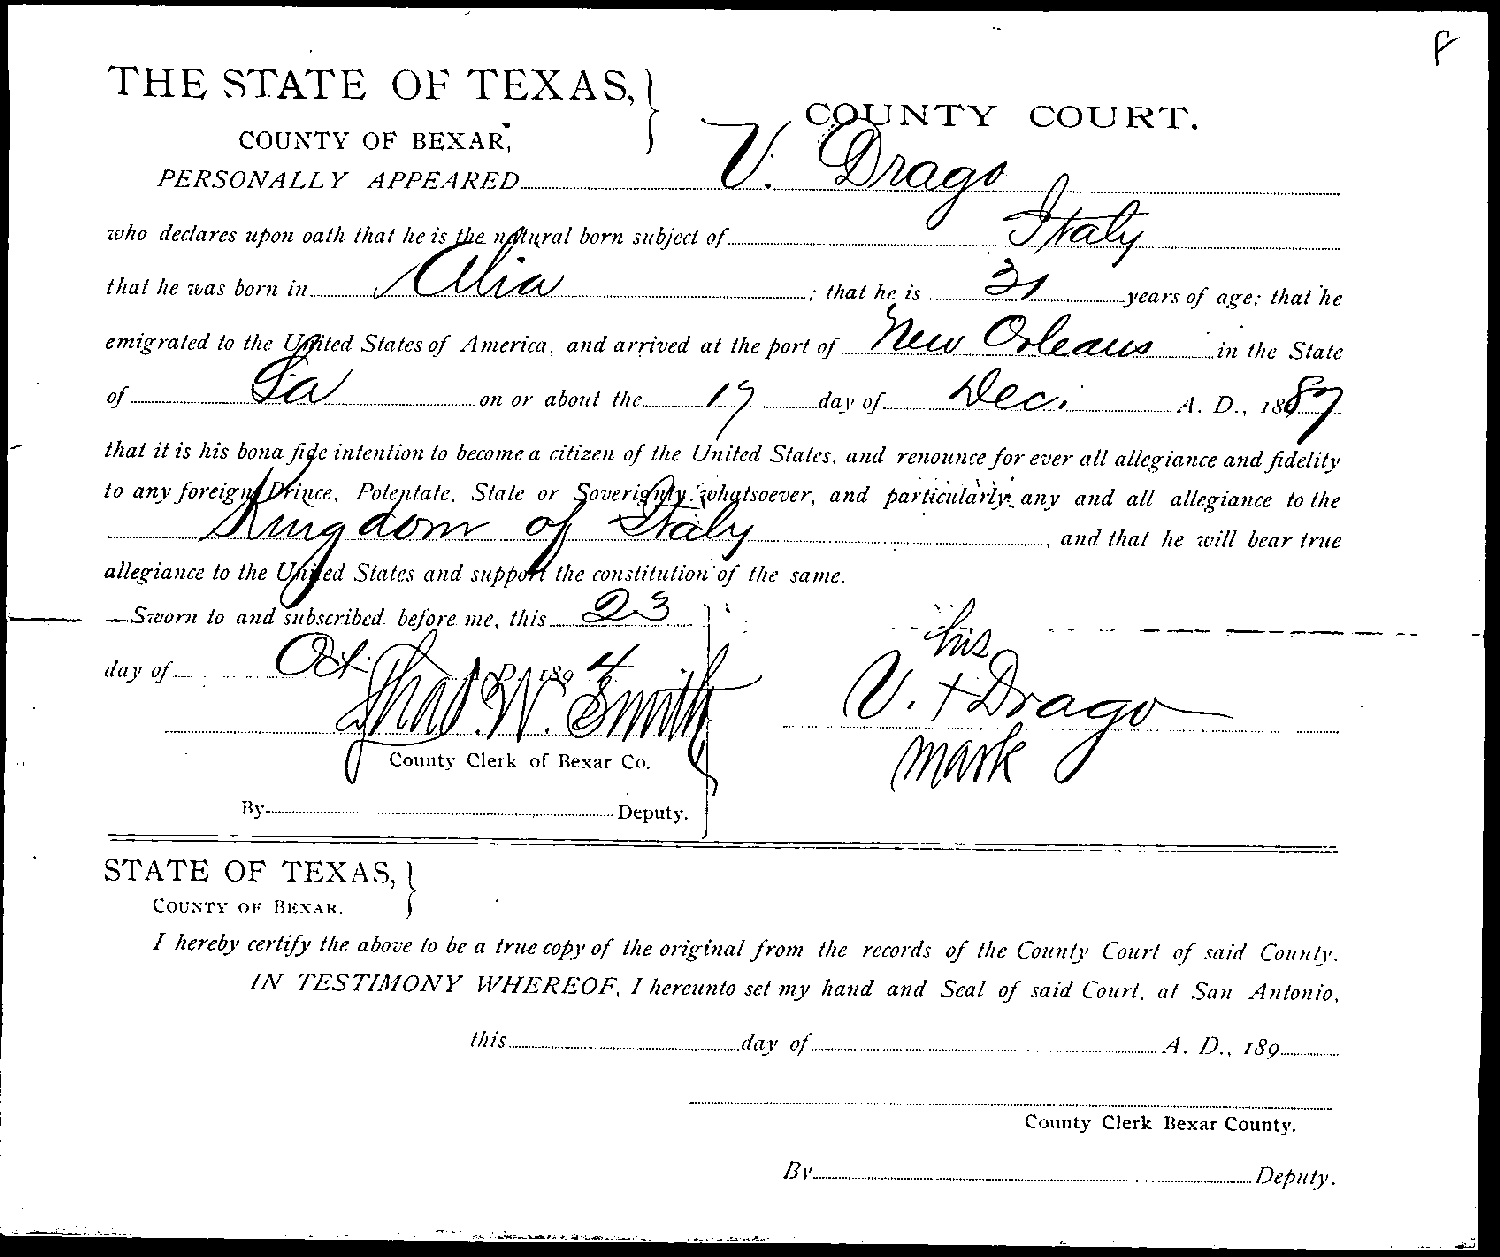 P
THE STATE OF TEXAS,
COUNTY OF BEXAR,
COUNTY COURT.
PERSONALLY APPEARED V. Drago
who declares upon oath that he is the natural born subject of Italy
that he was born in Alia ; that he is 31 years of age; that he
emigrated to the United States of America, and arrived at the port of New Orleans in the State
of La on or about the 17 day of Dec. A. D., 1887
that it is his bona fide intention to become a citizen of the United States, and renounce for ever all allegiance and fidelity
to any foreign Prince, Potentate, State or Soverignty whatsoever, and particularly any and all allegiance to the
Kingdom of Italy , and that he will bear true
allegiance to the United States and support the constitution of the same.
Sworn to and subscribed before me, this 23
day of Oct A. D. 1894
Thad. W. Smith
County Clerk of Bexar Co.
By Deputy.
his
V. + Drago
mark
STATE OF TEXAS,
COUNTY OF BEXAR.
I hereby certify the above to be a true copy of the original from the records of the County Court of said County.
IN TESTIMONY WHEREOF, I hereunto set my hand and Seal of said Court, at San Antonio,
this day of A. D., 189
County Clerk Bexar County.
By Deputy.